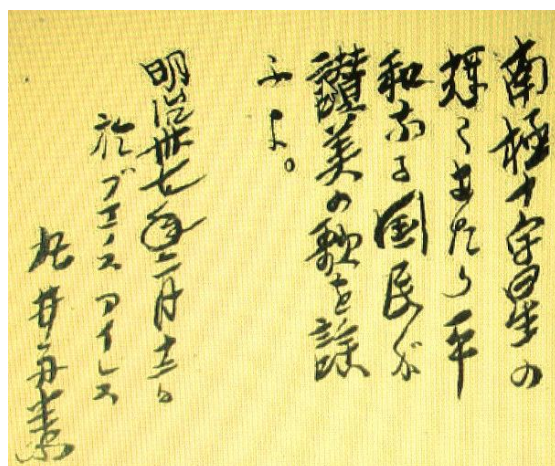 南極十字星の
輝くあたり平
和なる国民が
讃美の歌を謡
ふよ。
明治卅七年二月十三日
於ブエノスアイレス
井